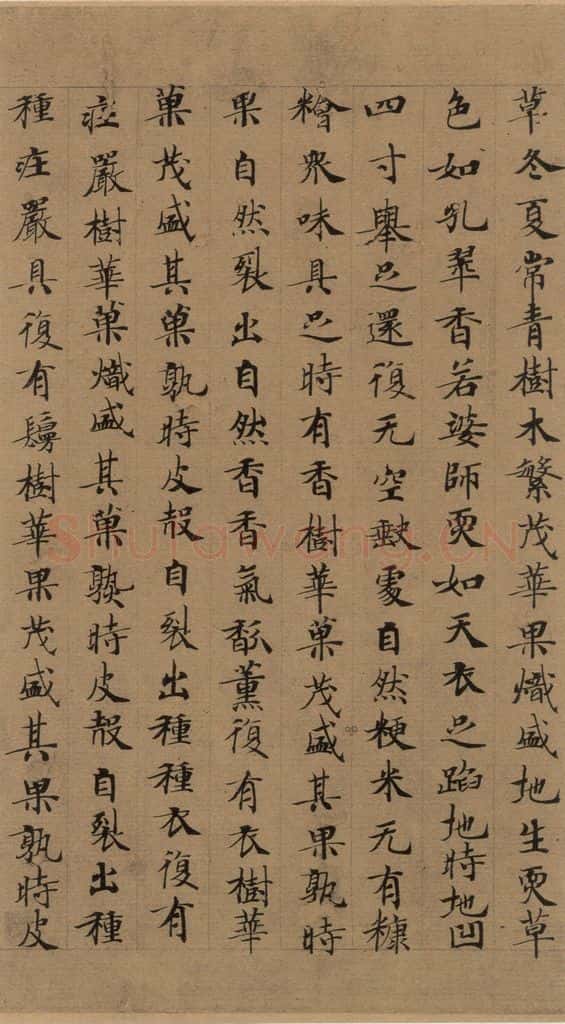 草冬夏常青樹木繁茂華果熾盛地生耎草
色如孔翠香若婆師耎如天衣足蹈地時地凹
四寸舉足還復无空缺處自然粳米无有糠
糩衆味具足時有香樹華菓茂盛其果孰時
果自然裂出自然香香氣馛薰復有衣樹華
菓茂盛其菓孰時皮殼自裂出種種衣復有
庄嚴樹華菓熾盛其菓孰時皮殼自裂出種
種庄嚴具復有鬘樹華果茂盛其果孰時皮
Shufawang.CN